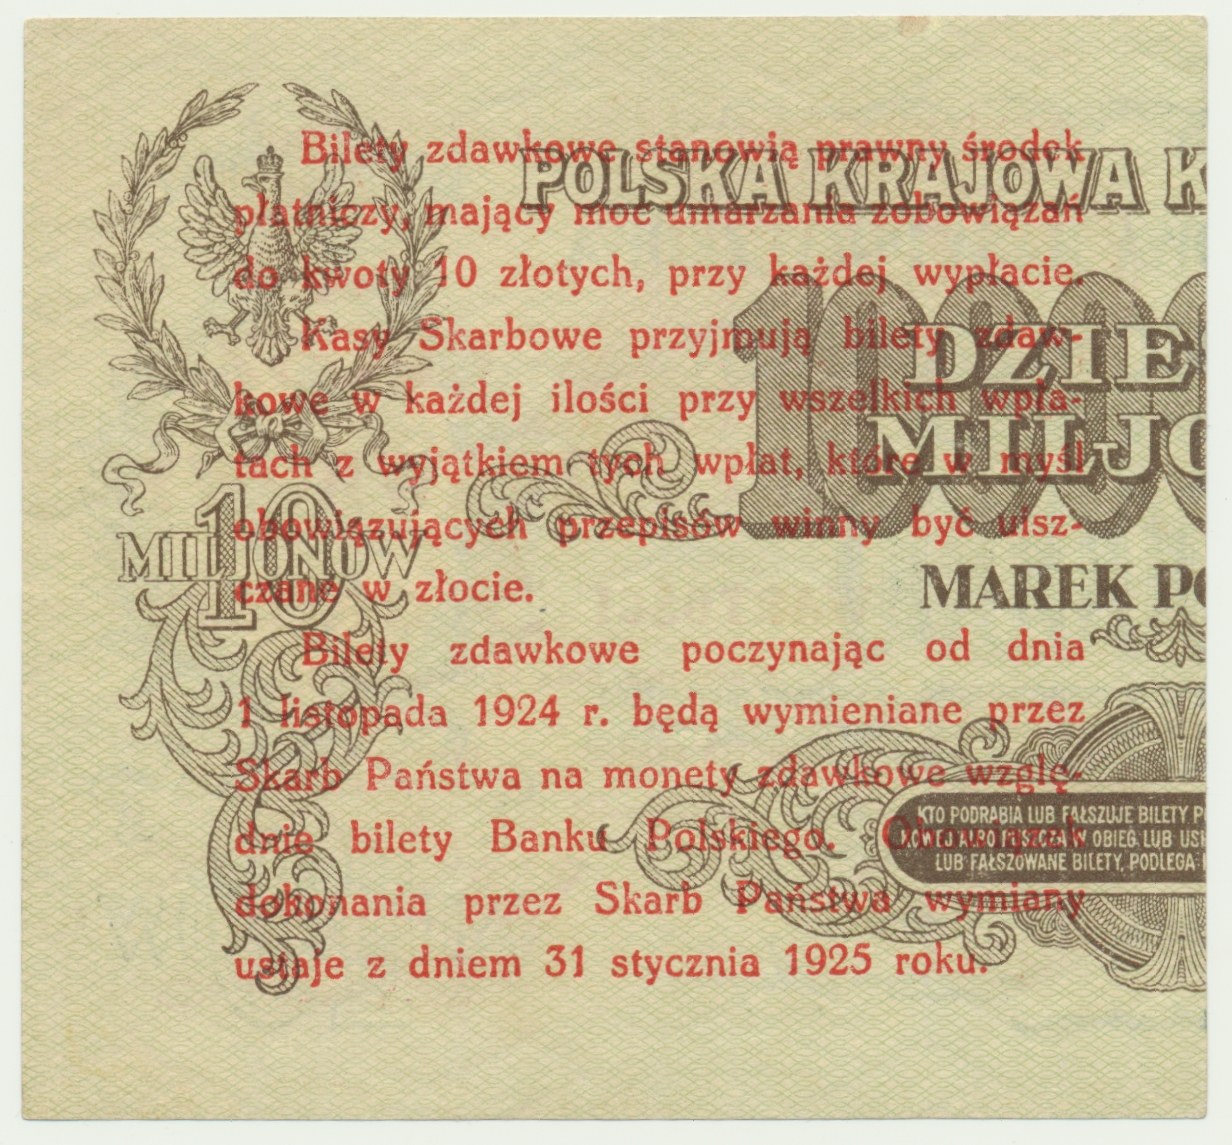 Bilety zdawkowe stanowią prawny środek
płatniczy, mający moc umarzania zobowiązań
do kwoty 10 złotych, przy każdej wypłacie.
Kasy Skarbowe przyjmują bilety zdaw-
kowe w każdej ilości przy wszelkich wpła-
tach z wyjątkiem tych wpłat, które w myśl
obowiązujących przepisów winny być uisz-
czane w złocie.
Bilety zdawkowe poczynając od dnia
1 listopada 1924 r. będą wymieniane przez
Skarb Państwa na monety zdawkowe wzglę-
dnie bilety Banku Polskiego. Obowiązek
dokonania przez Skarb Państwa wymiany
ustaje z dniem 31 stycznia 1925 roku.
POLSKA KRAJOWA K
10000
DZIE
MILJO
MAREK PO
10
MILJONÓW
KTO PODRABIA LUB FAŁSZUJE BILETY P
KOWEJ ALBO PUSZCZA W OBIEG LUB USI
LUB FAŁSZOWANE BILETY, PODLEGA